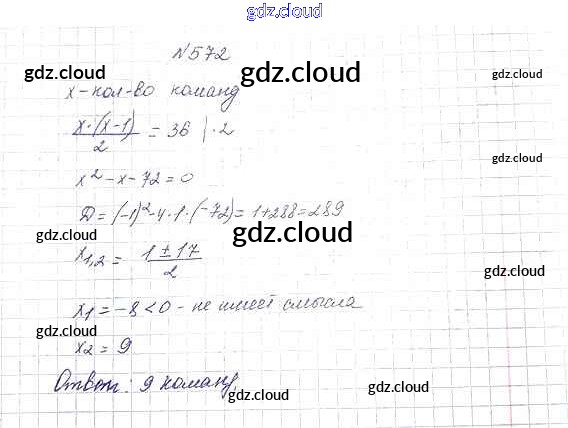 gdz.cloud
№572
gdz.cloud
gdz.cloud
gdz.cloud
x - кол-во команд
x·(x-1)/2 = 36 |·2
gdz.cloud
gdz.cloud
x² - x - 72 = 0
Д = (-1)² - 4·1·(-72) = 1+288 = 289
gdz.cloud
gdz.cloud
gdz.cloud
x1,2 = 1±17/2
x1 = -8 < 0 - не имеет смысла
gdz.cloud
gdz.cloud
x2 = 9
Ответ: 9 команд.
gdz.cloud
gdz.cloud